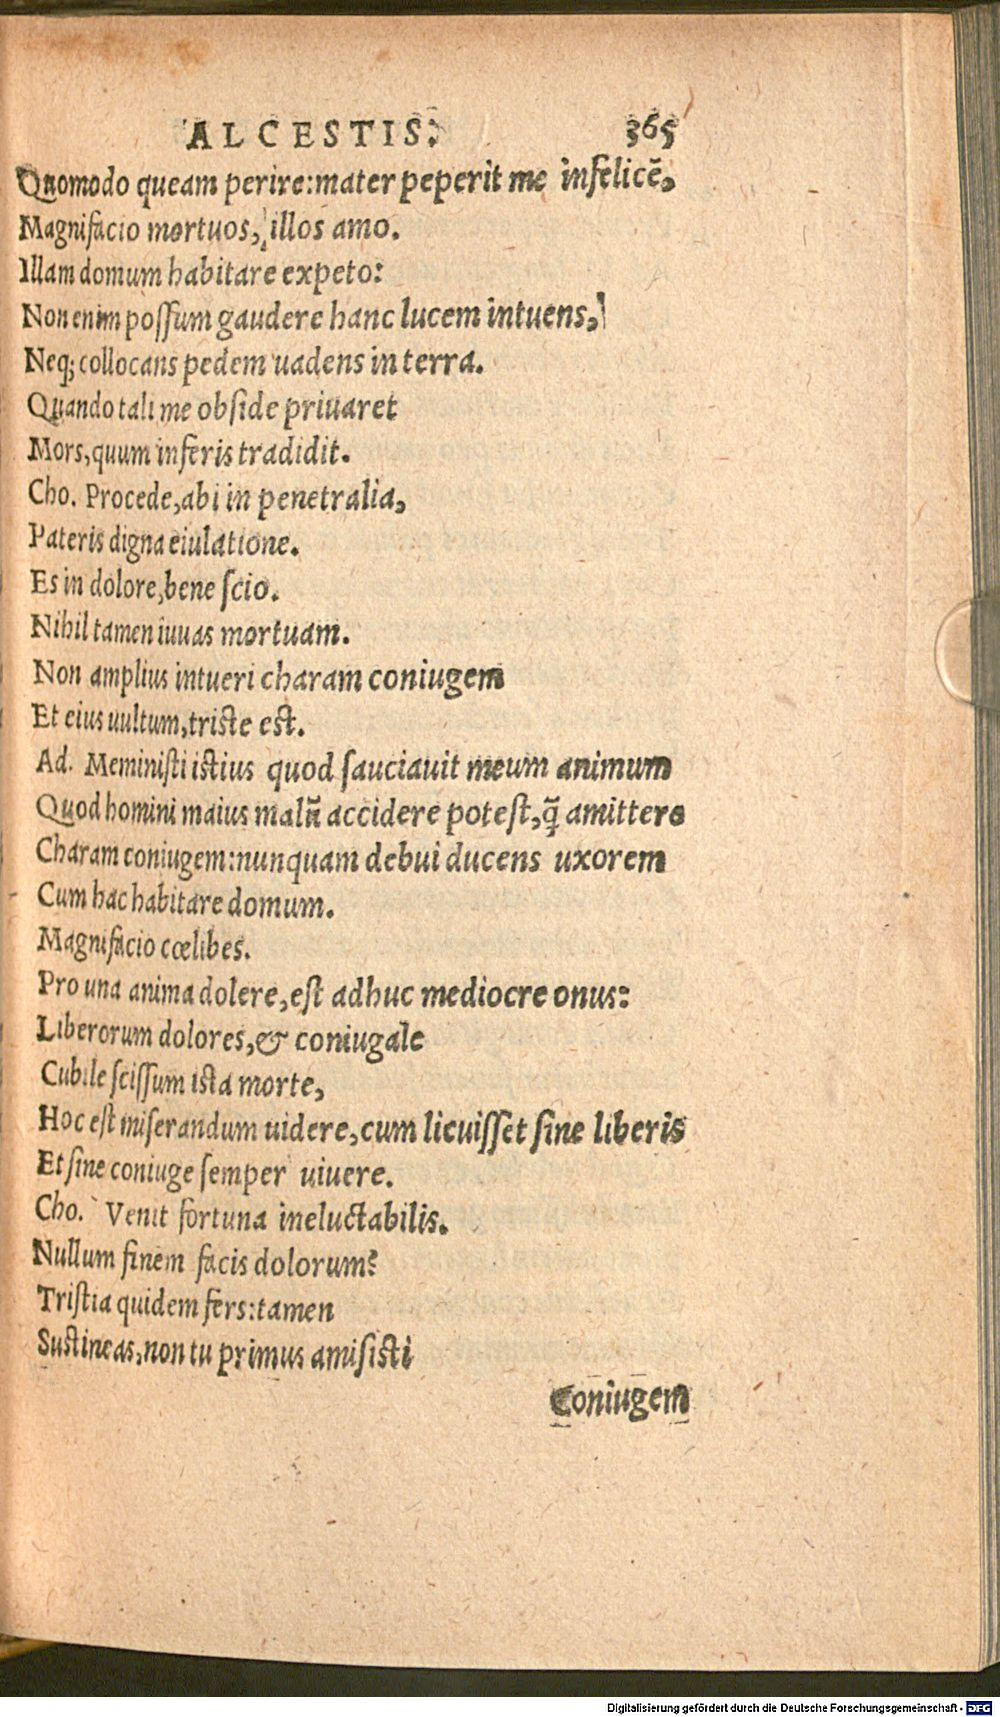 ALCESTIS. 365
Quomodo queam perire:mater peperit me infelicē,
Magnifacio mortuos, illos amo.
Illam domum habitare expeto:
Non enim possum gaudere hanc lucem intuens,
Neq; collocans pedem uadens in terra.
Quando tali me obside priuaret
Mors,quum inferis tradidit.
Cho. Procede,abi in penetralia,
Pateris digna eiulatione.
Es in dolore,bene scio.
Nihil tamen iuuas mortuam.
Non amplius intueri charam coniugem
Et eius uultum,triste est.
Ad. Meministi istius quod sauciauit meum animum
Quod homini maius malū accidere potest,q̄ amittere
Charam coniugem:nunquam debui ducens uxorem
Cum hac habitare domum.
Magnifacio cœlibes.
Pro una anima dolere,est adhuc mediocre onus:
Liberorum dolores,& coniugale
Cubile scissum ista morte,
Hoc est miserandum uidere,cum licuisset sine liberis
Et sine coniuge semper uiuere.
Cho. Venit fortuna ineluctabilis.
Nullum finem facis dolorum?
Tristia quidem fers:tamen
Sustineas,non tu primus amisisti
Coniugem
Digitalisierung gefördert durch die Deutsche Forschungsgemeinschaft - DFG